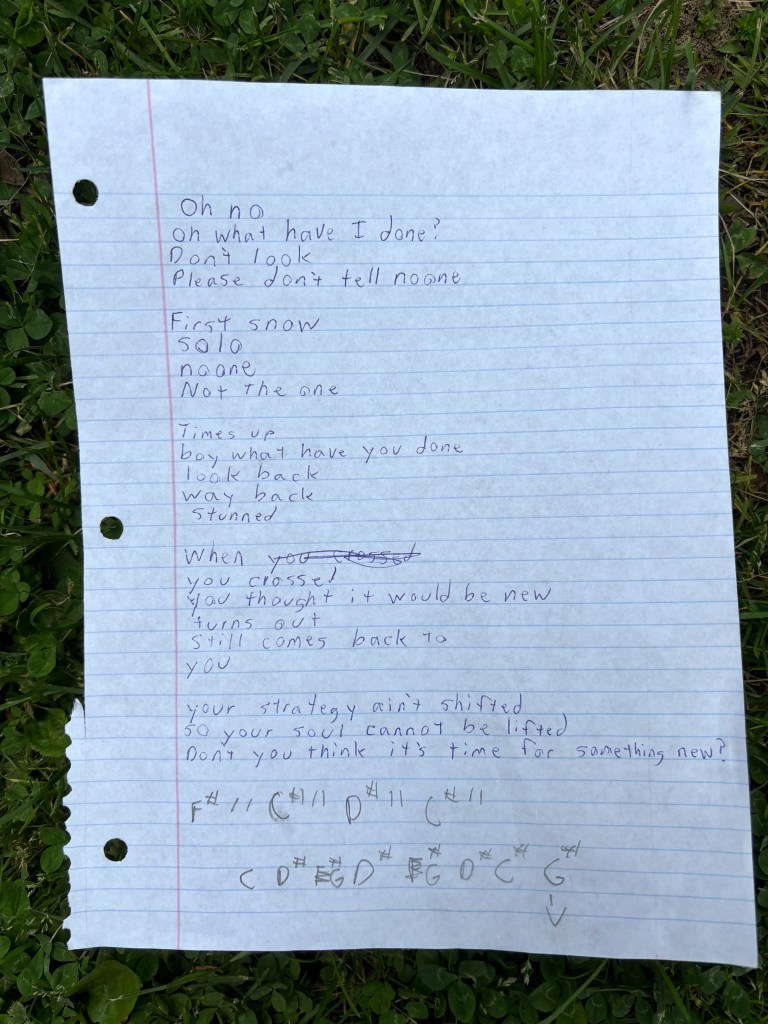 Oh no
oh what have I done?
Don't look
Please don't tell noone
First snow
solo
noone
Not The one
Times up
boy what have you done
look back
way back
stunned
When you crossed
you crossed
you thought it would be new
turns out
still comes back to
you
your strategy ain't shifted
so your soul cannot be lifted
Don't you think it's time for something new?
F# // C# // D# // C# //
C D# G# D# G# D# C# G#